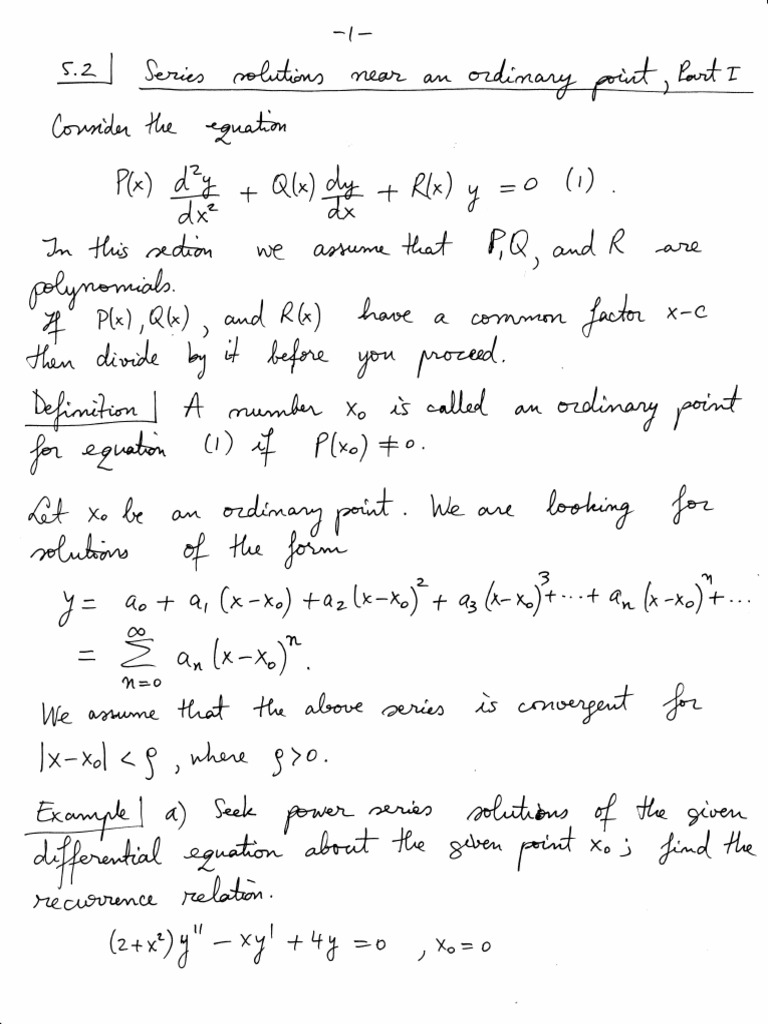 -1-
5.2 Series solutions near an ordinary point, Part I
Consider the equation
P(x) d²y/dx² + Q(x) dy/dx + R(x) y = 0 (1).
In this section we assume that P, Q, and R are
polynomials.
If P(x), Q(x), and R(x) have a common factor x-c
then divide by it before you proceed.
Definition A number x₀ is called an ordinary point
for equation (1) if P(x₀) ≠ 0.
Let x₀ be an ordinary point. We are looking for
solutions of the form
y = a₀ + a₁ (x-x₀) + a₂ (x-x₀)² + a₃ (x-x₀)³ + ... + aₙ (x-x₀)ⁿ + ...
= ∑_{n=0}^{∞} aₙ (x-x₀)ⁿ.
We assume that the above series is convergent for
|x-x₀| < ρ, where ρ>0.
Example a) Seek power series solutions of the given
differential equation about the given point x₀; find the
recurrence relation.
(2+x²) y'' - xy' + 4y = 0 , x₀ = 0